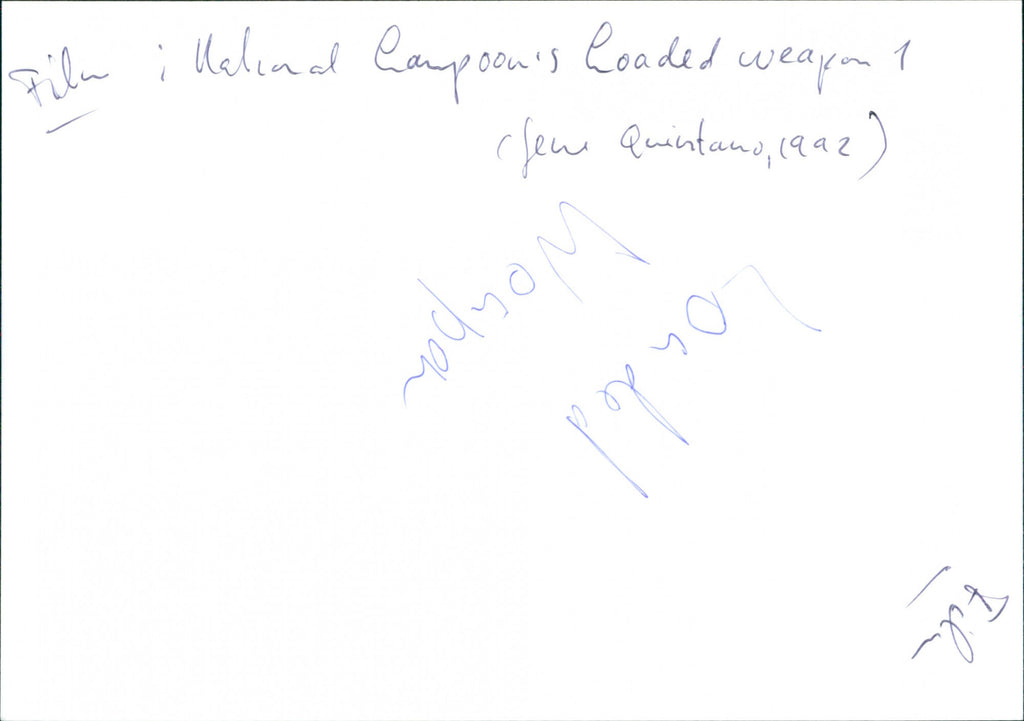 Film : National Lampoon's Loaded weapon 1
(Gene Quintano, 1992)
Film